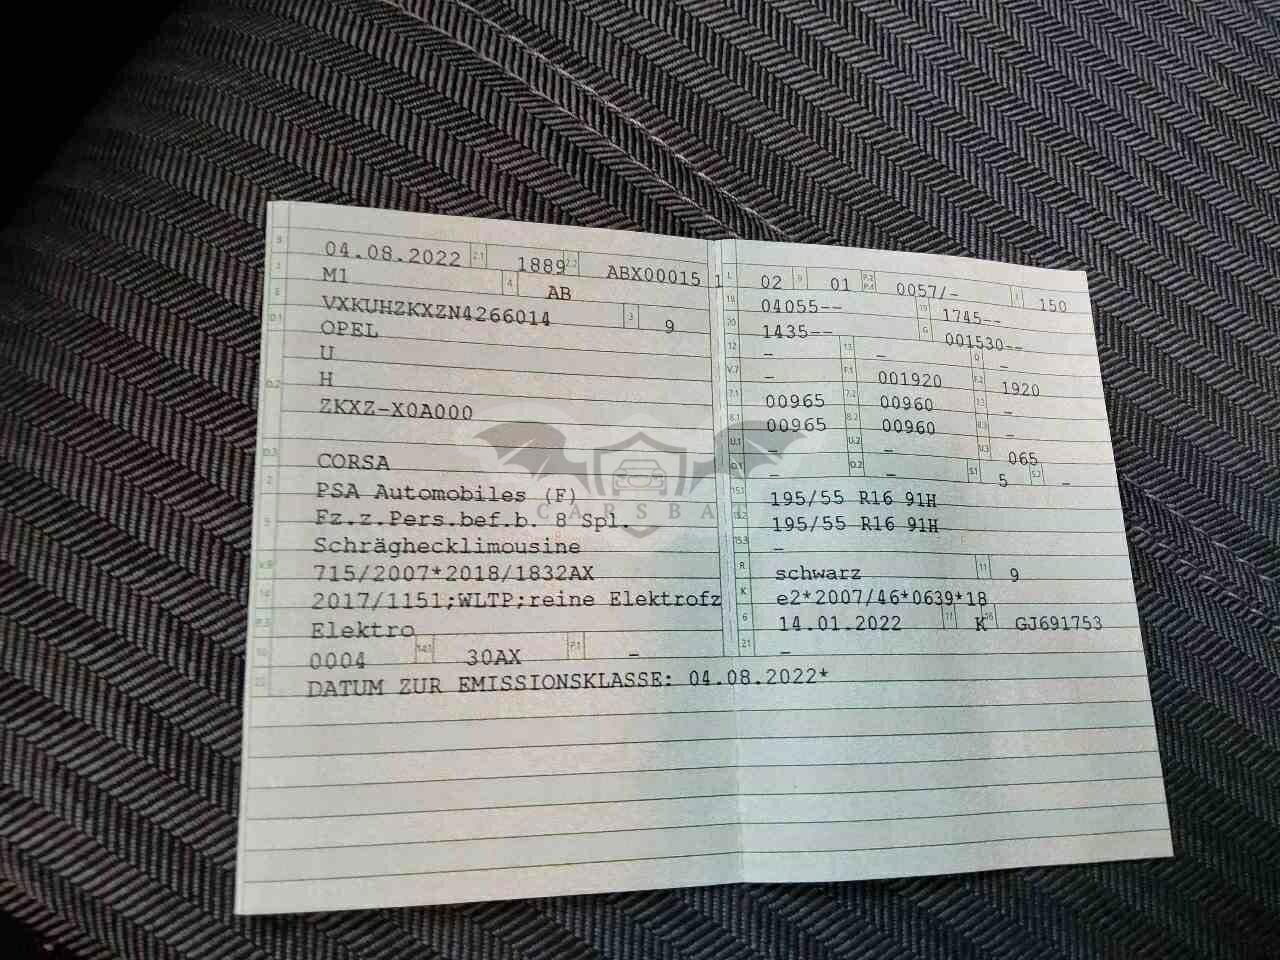 B 04.08.2022 2.1 1889 2.2 ABX00015 1
J M1 4 AB
E VXKUHZKXZN4266014 3 9
D.1 OPEL
U
D.2 H
ZKXZ-X0A000
D.3 CORSA
2 PSA Automobiles (F)
5 Fz.z.Pers.bef.b. 8 Spl.
Schräghecklimousine
V.9 715/2007*2018/1832AX
14 2017/1151;WLTP;reine Elektrofz
P.3 Elektro
10 0004 14.1 30AX P.1 -
22 DATUM ZUR EMISSIONSKLASSE: 04.08.2022*
L 02 9 01 P.2 P.4 0057/- T 150
18 04055-- 19 1745--
20 1435-- G 001530--
12 - 13 - Q -
V.7 - F.1 001920 F.2 1920
7.1 00965 7.2 00960 7.3 -
8.1 00965 8.2 00960 8.3 -
U.1 - U.2 - U.3 065
O.1 - O.2 - S.1 5 S.2 -
15.1 195/55 R16 91H
15.2 195/55 R16 91H
15.3 -
R schwarz 11 9
K e2*2007/46*0639*18
6 14.01.2022 17 K 16 GJ691753
21 -
CARSBA